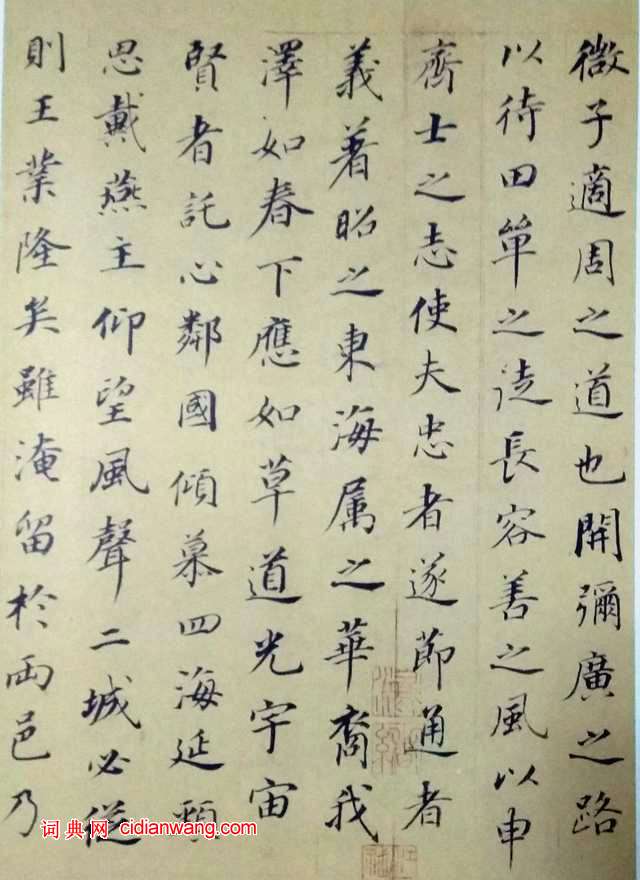 微子適周之道也開彌廣之路
以待田單之徒長容善之風以申
齊士之志使夫忠者遂節通者
義著昭之東海属之華裔我
澤如春下應如草道光宇宙
賢者託心鄰國傾慕四海延頸
思戴燕主仰望風聲二城必從
則王業隆矣雖淹留於兩邑乃
词典网 cidianwang.com